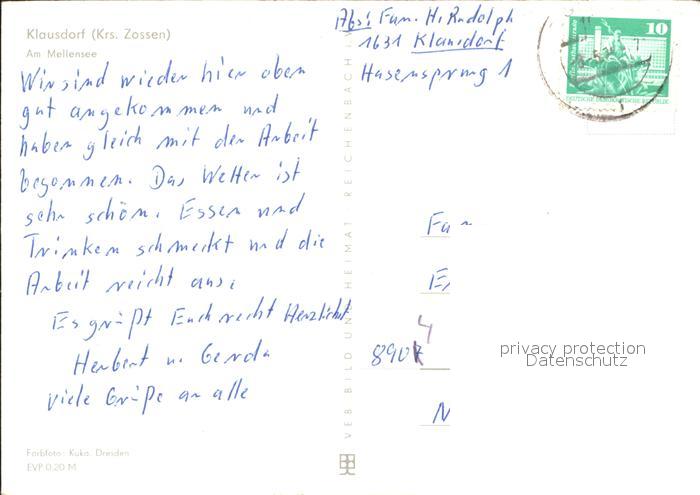 Klausdorf (Krs. Zossen)
Am Mellensee
Wir sind wieder hier oben
gut angekommen und
haben gleich mit der Arbeit
begonnen. Das Wetter ist
sehr schön. Essen und
Trinken schmeckt und die
Arbeit reicht aus.
Es grüßt Euch recht Herzlichst
Herbert u. Gerda
viele Grüße an alle
Farbfoto: Kuka, Dresden
EVP 0,20 M
VEB BILD UND HEIMAT REICHENBACH
Abs: Fam. H. Rudolph
1631 Klausdorf
Hasensprung 1
10
DEUTSCHE DEMOKRATISCHE REPUBLIK
Fa
E
8904
N
privacy protection
Datenschutz